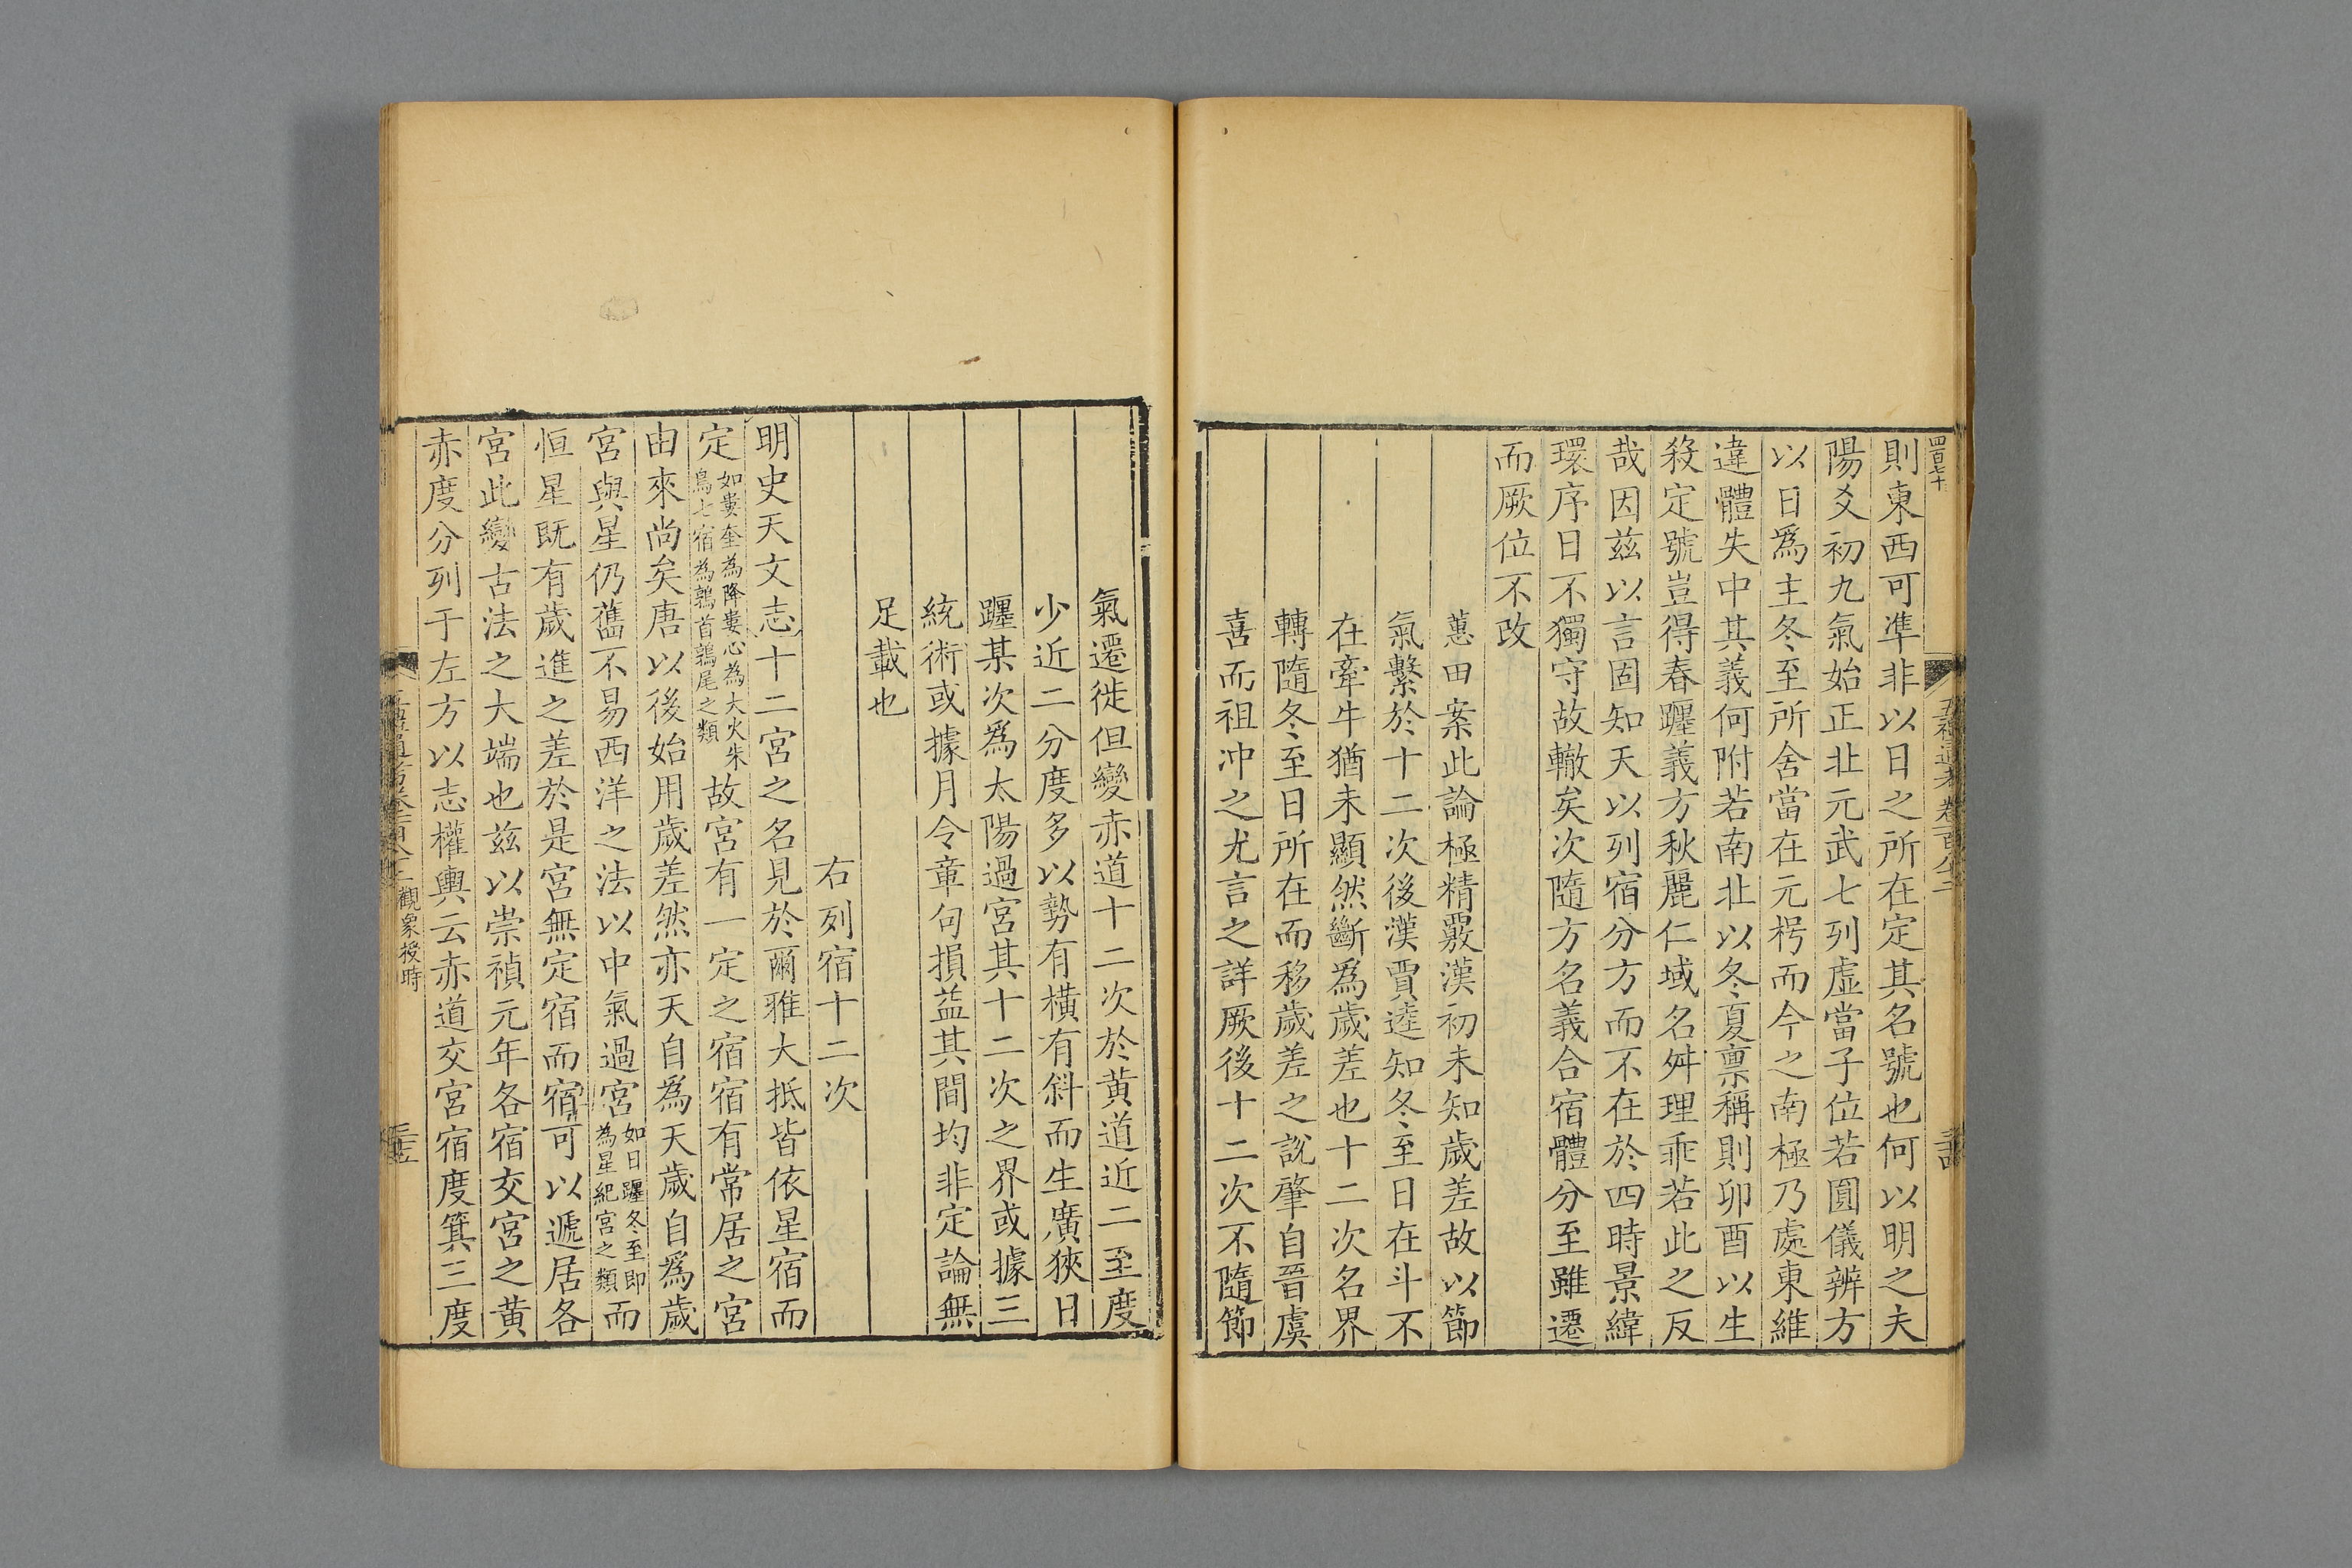 四百七十
則東西可準非以日之所在定其名號也何以明之夫
陽爻初九氣始正北元武七列虛當子位若圓儀辨方
以日爲主冬至所舍當在元枵而今之南極乃處東維
違體失中其義何附若南北以冬夏稟稱則卯酉以生
殺定號豈得春躔義方秋麗仁域名舛理乖若此之反
哉因茲以言固知天以列宿分方而不在於四時景緯
環序日不獨守故轍矣次隨方名義合宿體分至雖遷
而厥位不改
蕙田案此論極精覈漢初未知歲差故以節
氣繫於十二次後漢賈逵知冬至日在斗不
在牽牛猶未顯然斷爲歲差也十二次名界
轉隨冬至日所在而移歲差之說肇自晉虞
喜而祖沖之尤言之詳厥後十二次不隨節
氣遷徙但變赤道十二次於黃道近二至度
少近二分度多以勢有橫有斜而生廣狹日
躔某次爲太陽過宮其十二次之界或據三
統術或據月令章句損益其間均非定論無
足載也
右列宿十二次
明史天文志十二宮之名見於爾雅大抵皆依星宿而
定如婁奎為降婁心為大火朱鳥七宿為鶉首鶉尾之類故宮有一定之宿宿有常居之宮
由來尚矣唐以後始用歲差然亦天自爲天歲自爲歲
宮與星仍舊不易西洋之法以中氣過宮如日躔冬至即為星紀宮之類而
恒星既有歲進之差於是宮無定宿而宿可以遞居各
宮此變古法之大端也茲以崇禎元年各宿交宮之黃
赤度分列于左方以志權輿云赤道交宮宿度箕三度
觀象授時